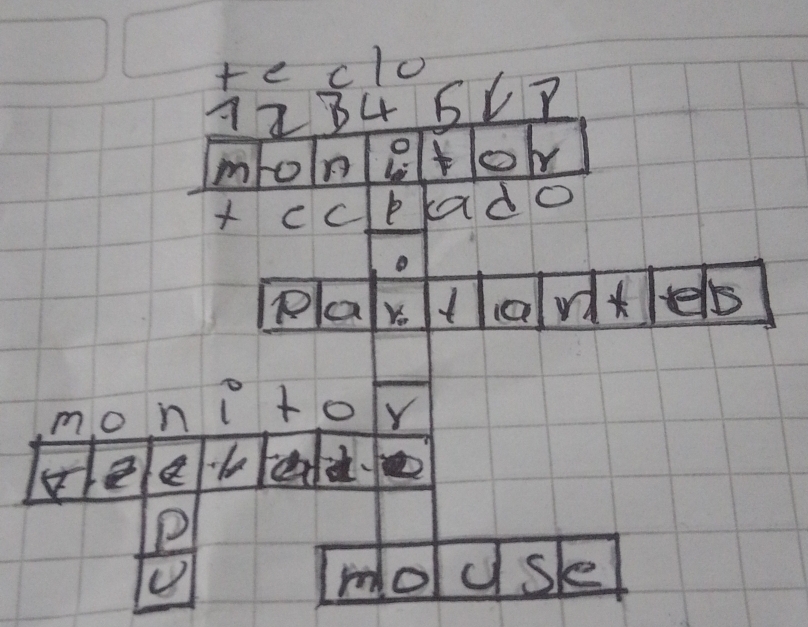 teclo
1 2 3 4 5
monitor
teclado
partantes
monitor
teclado
p
u
mouse